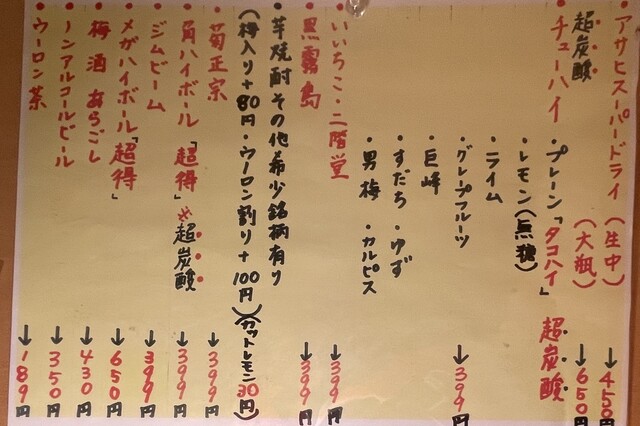 アサヒスーパードライ(生中)→450円
(大瓶)→650円
超炭酸チューハイ
・プレーン「タコハイ」超炭酸
・レモン(無糖)
・ライム
・グレープフルーツ→399
・巨峰
・すだち・ゆず
・男梅・カルピス
いいちこ・二階堂→399円
黒霧島→399円
・芋焼酎その他希少銘柄有り
(梅入り+80円・ウーロン割り+100円)(カットレモン30円)
菊正宗→399円
角ハイボール「超得」※超炭酸→399円
ジムビーム→399円
メガハイボール「超得」→650円
梅酒あらごし→430円
ノンアルコールビール→350円
ウーロン茶→189円